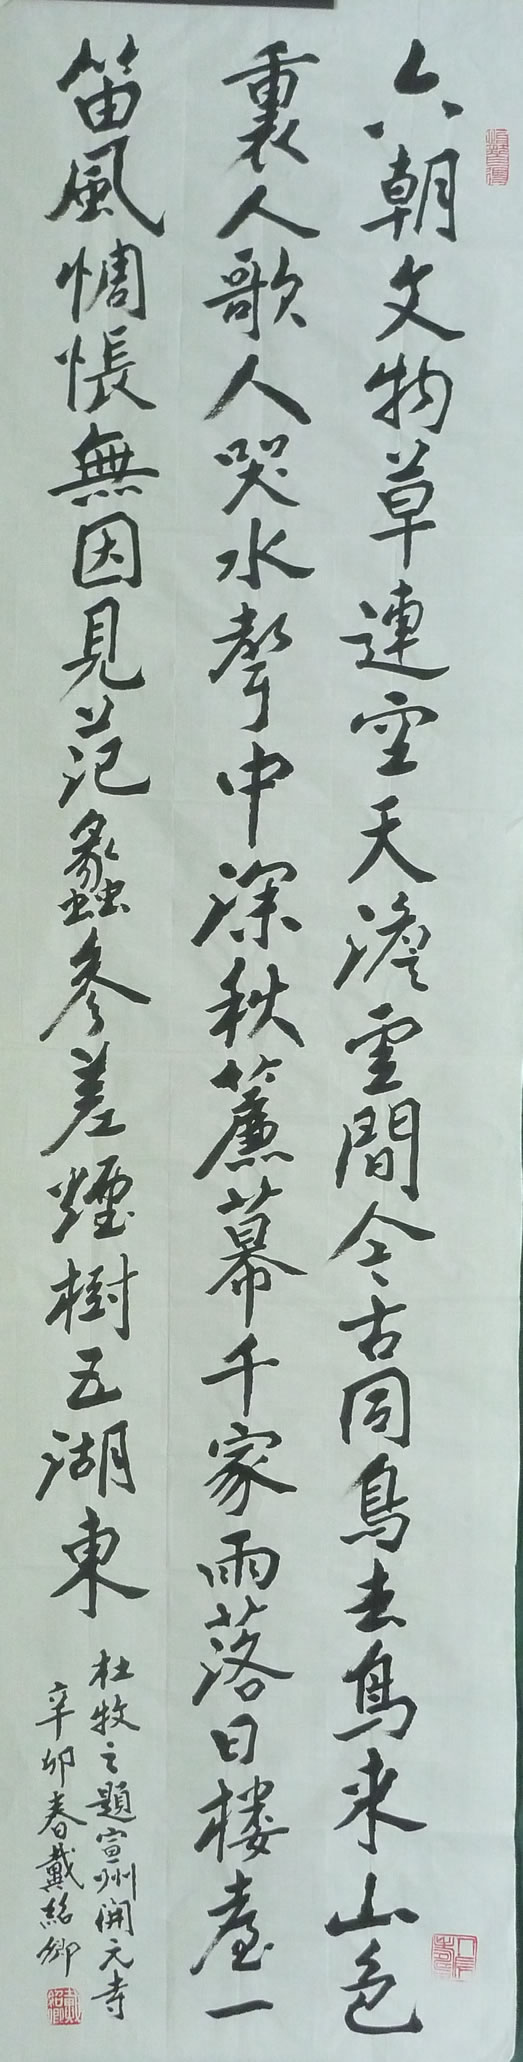 六朝文物草連空天澹雲間今古同鳥去鳥来山色
裏人歌人哭水聲中深秋簾幕千家雨落日楼臺一
笛風惆悵無因見范蠡参差煙樹五湖東
杜牧之題宣州開元寺
辛卯春戴紹卿